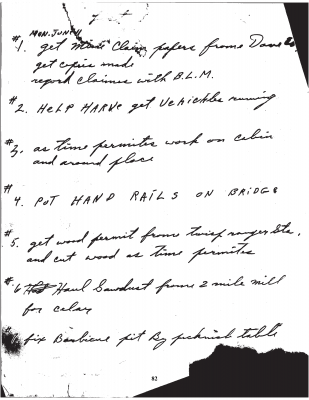 MON. JUNE 11
#1. get Mine Claim papers frome Dave
get copies made
repord claimes with B.L.M.
#2. HELP HARVE get VehickLes running
#3. as time permites work on cabin
and around place
#4. POT HAND RAILS ON BRIDGE
#5. get wood permit from twisp ranger sta.
and cut wood as time permites
#6 Haul Sawdust frome 2 mile mill
for
fix Barbicue pit By picknick table
82